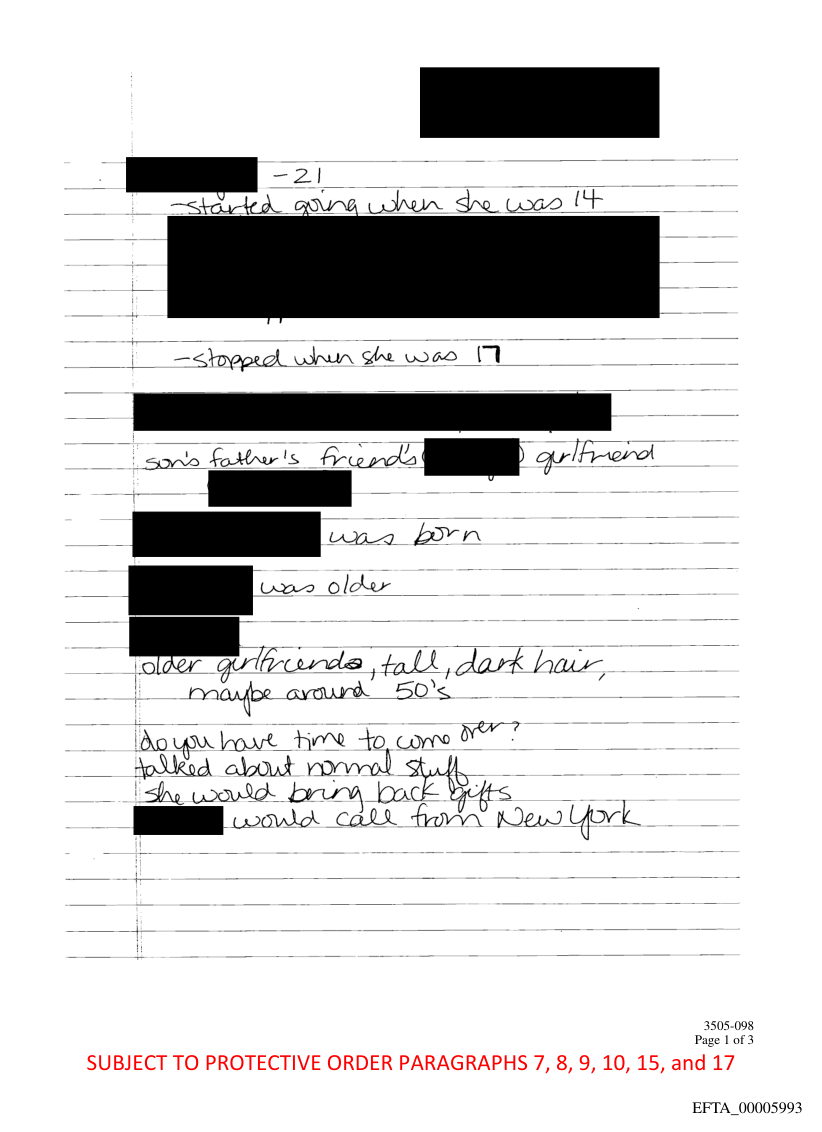 -21
-started going when she was 14
-stopped when she was 17
son's father's friend's ( ) girlfriend
was born
was older
older girlfriends, tall, dark hair,
maybe around 50's
do you have time to come over?
talked about normal stuff
she would bring back gifts
would call from New York
3505-098
Page 1 of 3
SUBJECT TO PROTECTIVE ORDER PARAGRAPHS 7, 8, 9, 10, 15, and 17
EFTA_00005993